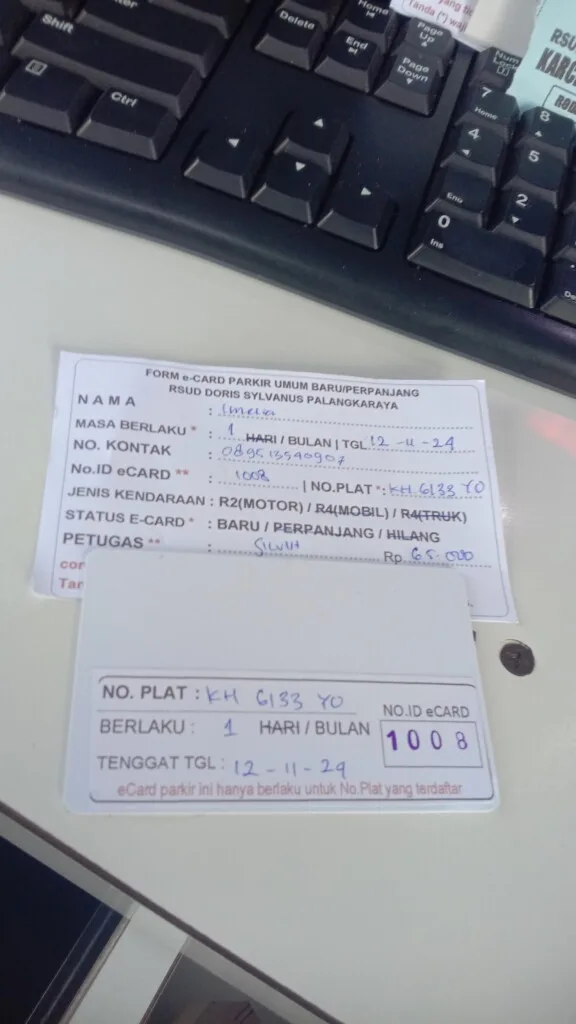 Shift
Ctrl
Delete
Home
End
Page Up
Page Down
Num Lock
7 Home
8
4
5
End
2
0 Ins
Tanda (*) waj
RSU
KARC
FORM e-CARD PARKIR UMUM BARU/PERPANJANG
RSUD DORIS SYLVANUS PALANGKARAYA
NAMA :
MASA BERLAKU * : 1 HARI / BULAN | TGL 12 -11- 24
NO. KONTAK : 089513540907
No.ID eCARD ** : 1008 | NO.PLAT *: KH 6133 YO
JENIS KENDARAAN : R2(MOTOR) / R4(MOBIL) / R4(TRUK)
STATUS E-CARD * : BARU / PERPANJANG / HILANG
PETUGAS ** : Rp. 65.000
con
Tan
NO. PLAT : KH 6133 YO
BERLAKU : 1 HARI / BULAN
TENGGAT TGL : 12 -11- 24
NO.ID eCARD
1008
eCard parkir ini hanya berlaku untuk No.Plat yang terdaftar